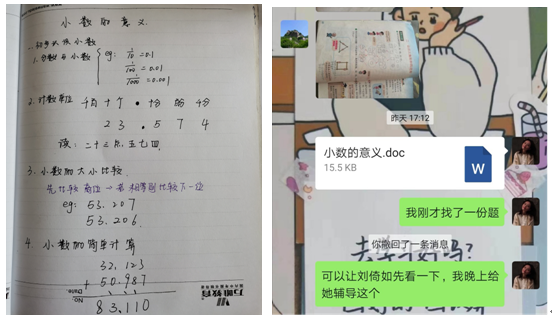 小数的意义.
一.初步认识小数
1.分数与小数 eg: 1/10=0.1
1/100=0.01
1/1000=0.001
2.计数单位 十个·十分 百分 千分
2 3 . 5 7 4
读: 二十三点五七四.
3.小数的大小比较
先比较高位→若相等则比较下一位
eg: 53.207
53.206
4.小数的简单计算
32.123
+50.987
83.110
No.
Date
万唯教育
昨天 17:12
小数的意义.doc
15.5 KB
W
我刚才找了一份题
你撤回了一条消息
可以让刘倚如先看一下，我晚上给
她辅导这个